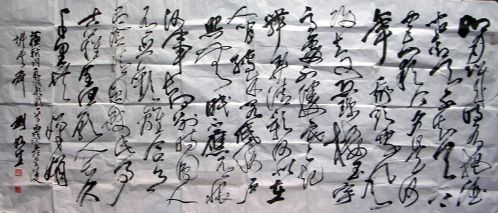 明月幾時有把酒
問青天不知天上
宮闕今夕是何
年我欲乘風歸
去又恐瓊樓玉宇
高處不勝寒起
舞弄清影何似在
人間轉朱閣低綺户
照無眠不應有恨
何事長向別時圓人
有悲歡離合月有
陰晴圓缺此事
古難全但願人長久
千里共嬋娟